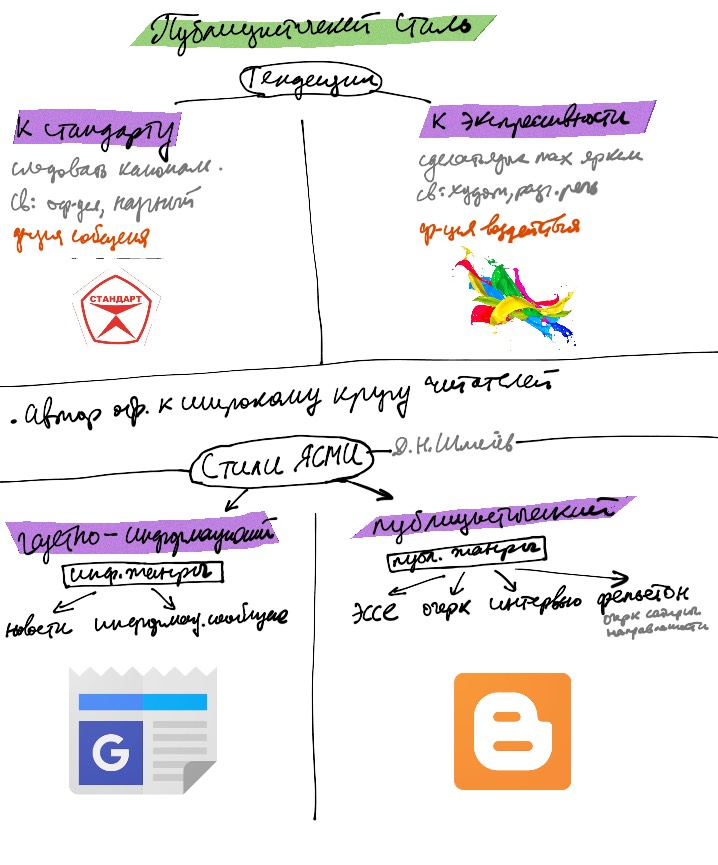 Публицистический стиль
Тенденции
К стандарту
следовать канонам.
Св: оф-дел, научный
ф-ция сообщения
СТАНДАРТ
К экспрессивности
сделать язык max ярким
св: худож, разг. речь
ф-ция воздействия
. Автор оф. к широкому кругу читателей
Стили ЯСМИ
Д.Н.Шмелёв
газетно-информационный
инф. жанры
новости информац. сообщение
G
публицистический
публ. жанры
эссе очерк интервью фельетон
очерк сатирич
направленности
B